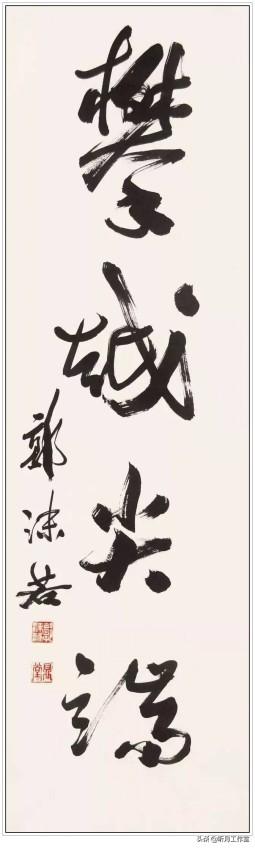 攀越尖端
郭沫若
头条@听月工作室